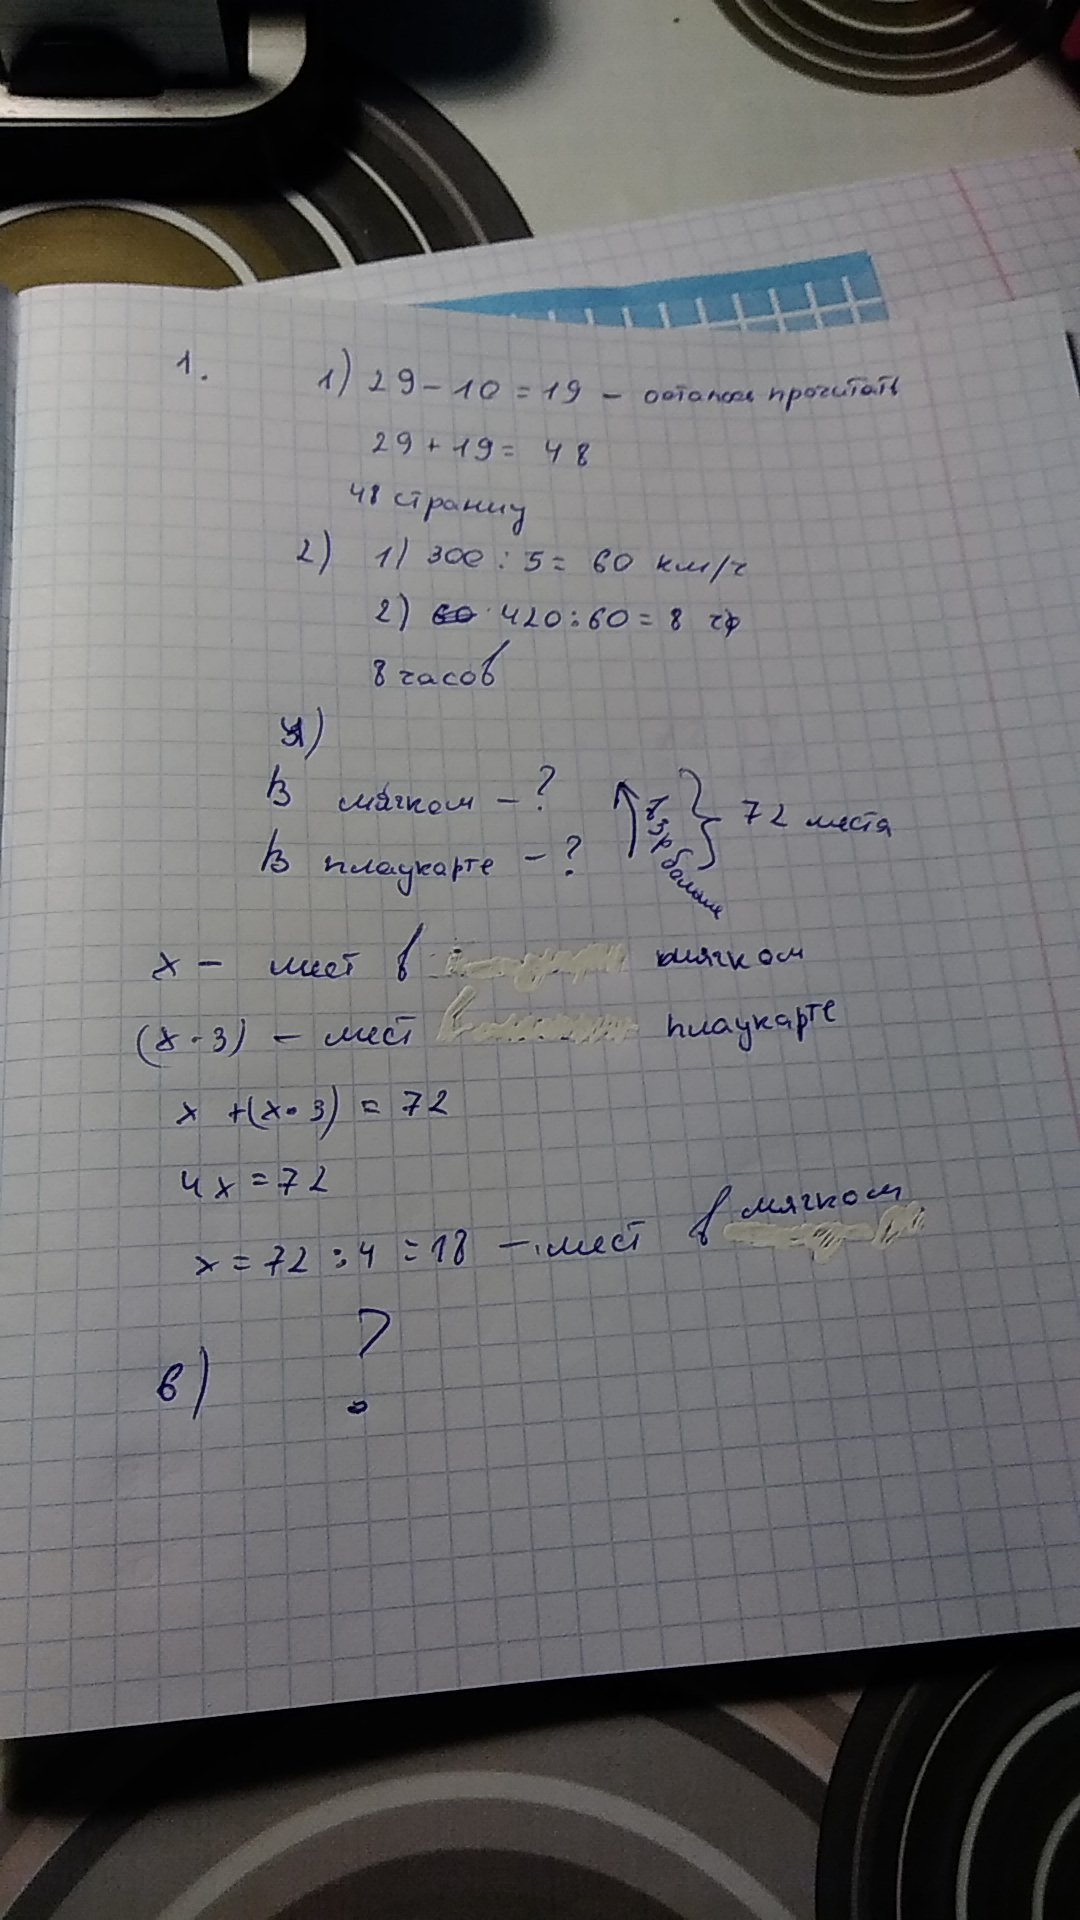 1. 1) 29 - 10 = 19 - осталось прочитать
29 + 19 = 48
48 страниц
2) 1) 300 : 5 = 60 км/ч
2) 420 : 60 = 8 ч
8 часов
В мягком - ?
В плаукарте - ? 3 р больше } 72 места
x - мест в мягком
(x · 3) - мест плаукарте
x + (x · 3) = 72
4x = 72
x = 72 : 4 = 18 - мест в мягком
в) ?